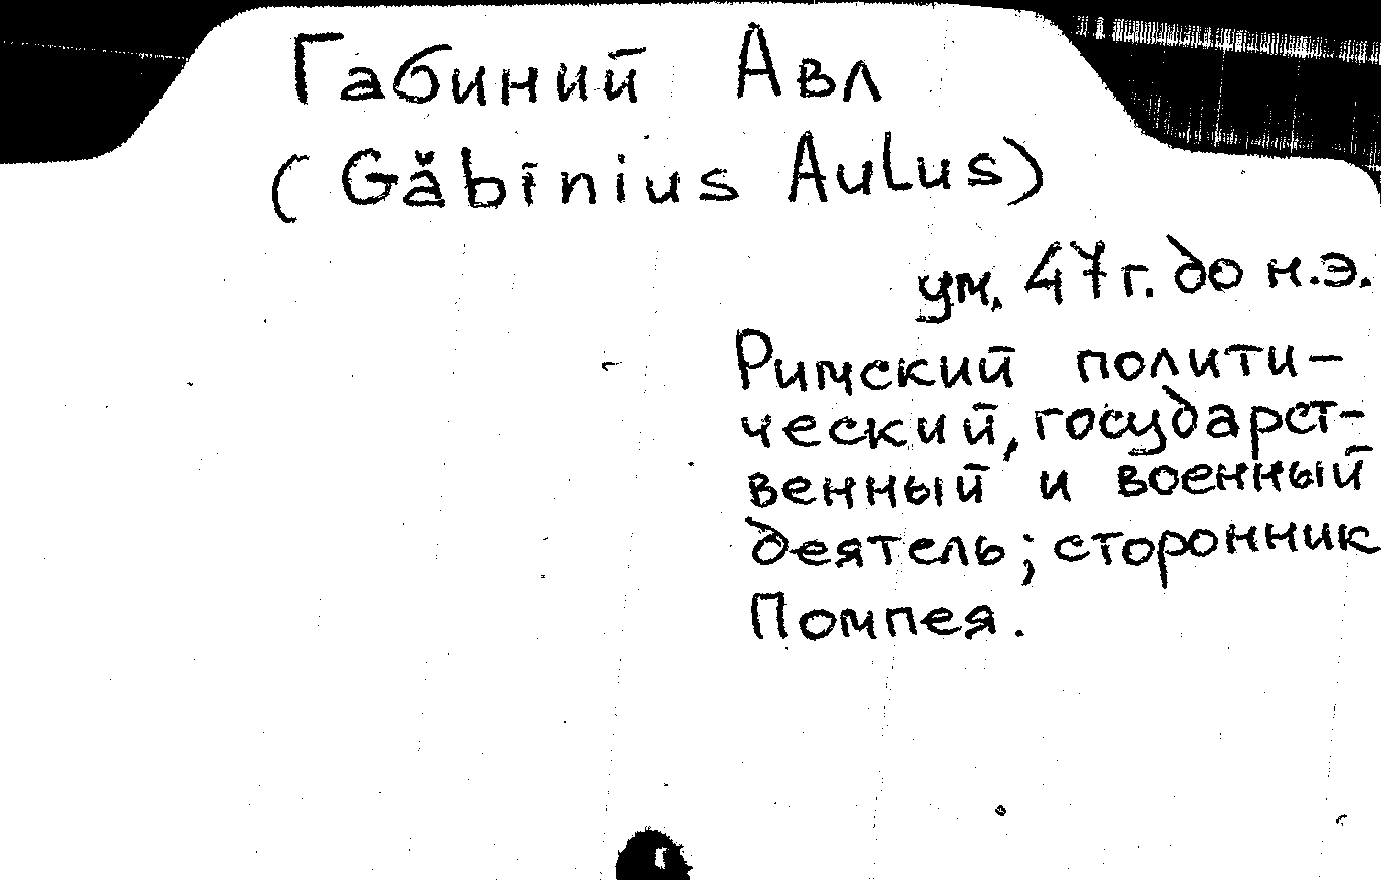 Габиний Авл
(Găbīnius Aulus)
ум. 47 г. до н.э.
Римский полити-
ческий, государст-
венный и военный
деятель; сторонник
Помпея.